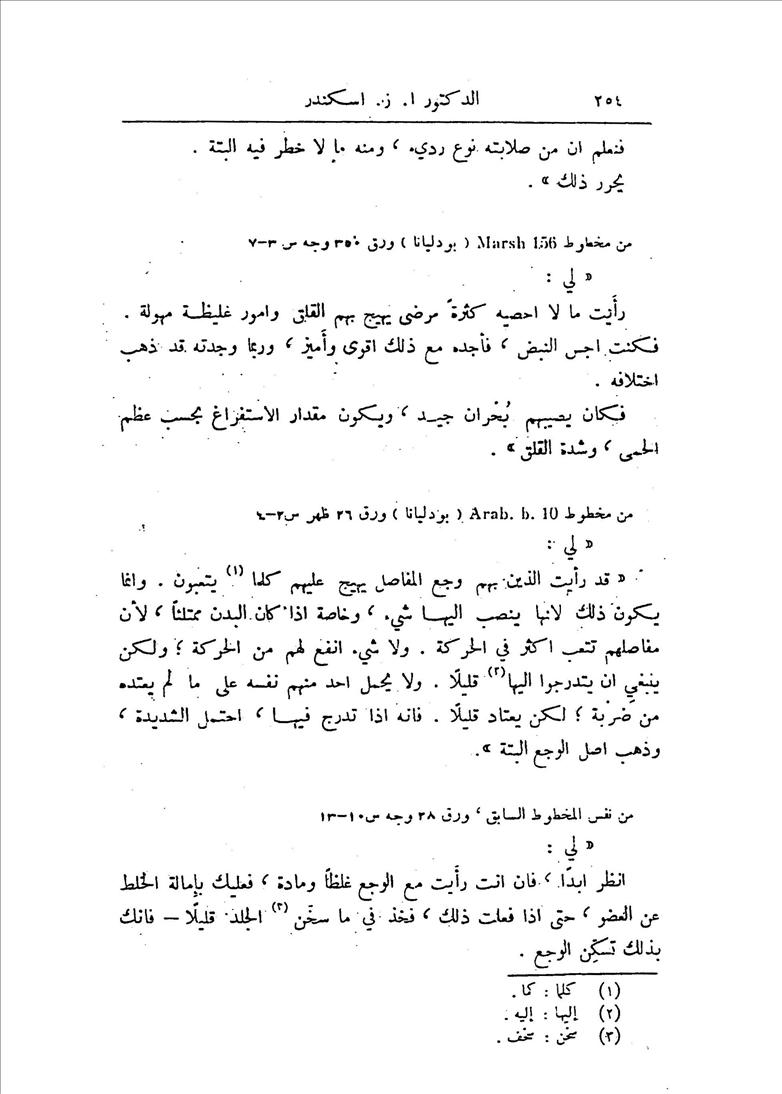 ٢٥٤ الدكتور ا. ز. اسكندر
فنعلم ان من صلابته نوع رديء ، ومنه ما لا خطر فيه البتة .
يحرر ذلك » .
من مخطوط Marsh 156 ( بودليانا ) ورق ٣٥٠ وجه س ٣–٧
« لي :
رأَيت ما لا احصيه كثرةً مرضى يهيج بهم القلق وامور غليظة مهولة .
فكنت اجس النبض ، فأجده مع ذلك اقوى وأَميز ، وربما وجدته قد ذهب
اختلافه .
فكان يصيبهم بُحْران جيد ، ويكون مقدار الاستفراغ بحسب عظم
الحمى ، وشدة القلق » .
من مخطوط Arab. b. 10 ( بودليانا ) ورق ٢٦ ظهر س٢–٤
« لي :
« قد رأيت الذين بهم وجع المفاصل يهيج عليهم كلما (١) يتعبون . وانما
يكون ذلك لانها ينصب اليها شيء ، وخاصة اذا كان البدن ممتلئاً ، لأن
مفاصلهم تتعب اكثر في الحركة . ولا شيء انفع لهم من الحركة ؛ ولكن
ينبغي ان يتدرجوا اليها(٢) قليلًا . ولا يحمل احد منهم نفسه على ما لم يعتده
من ضَرْبة ؛ لكن يعتاد قليلًا . فانه اذا تدرج فيها ، احتمل الشديدة ،
وذهب اصل الوجع البتة ».
من نفس المخطوط السابق ، ورق ٢٨ وجه س١٠–١٣
« لي :
انظر ابدًا ، فان انت رأَيت مع الوجع غلظاً ومادة ، فعليك بإِمالة الخلط
عن العضو ، حتى اذا فعلت ذلك ، فخذ في ما سخّن (٣) الجلد قليلًا – فانك
بذلك تسكّن الوجع .
(١) كلما : كما .
(٢) إليها : إليه .
(٣) سخّن : سخّف .